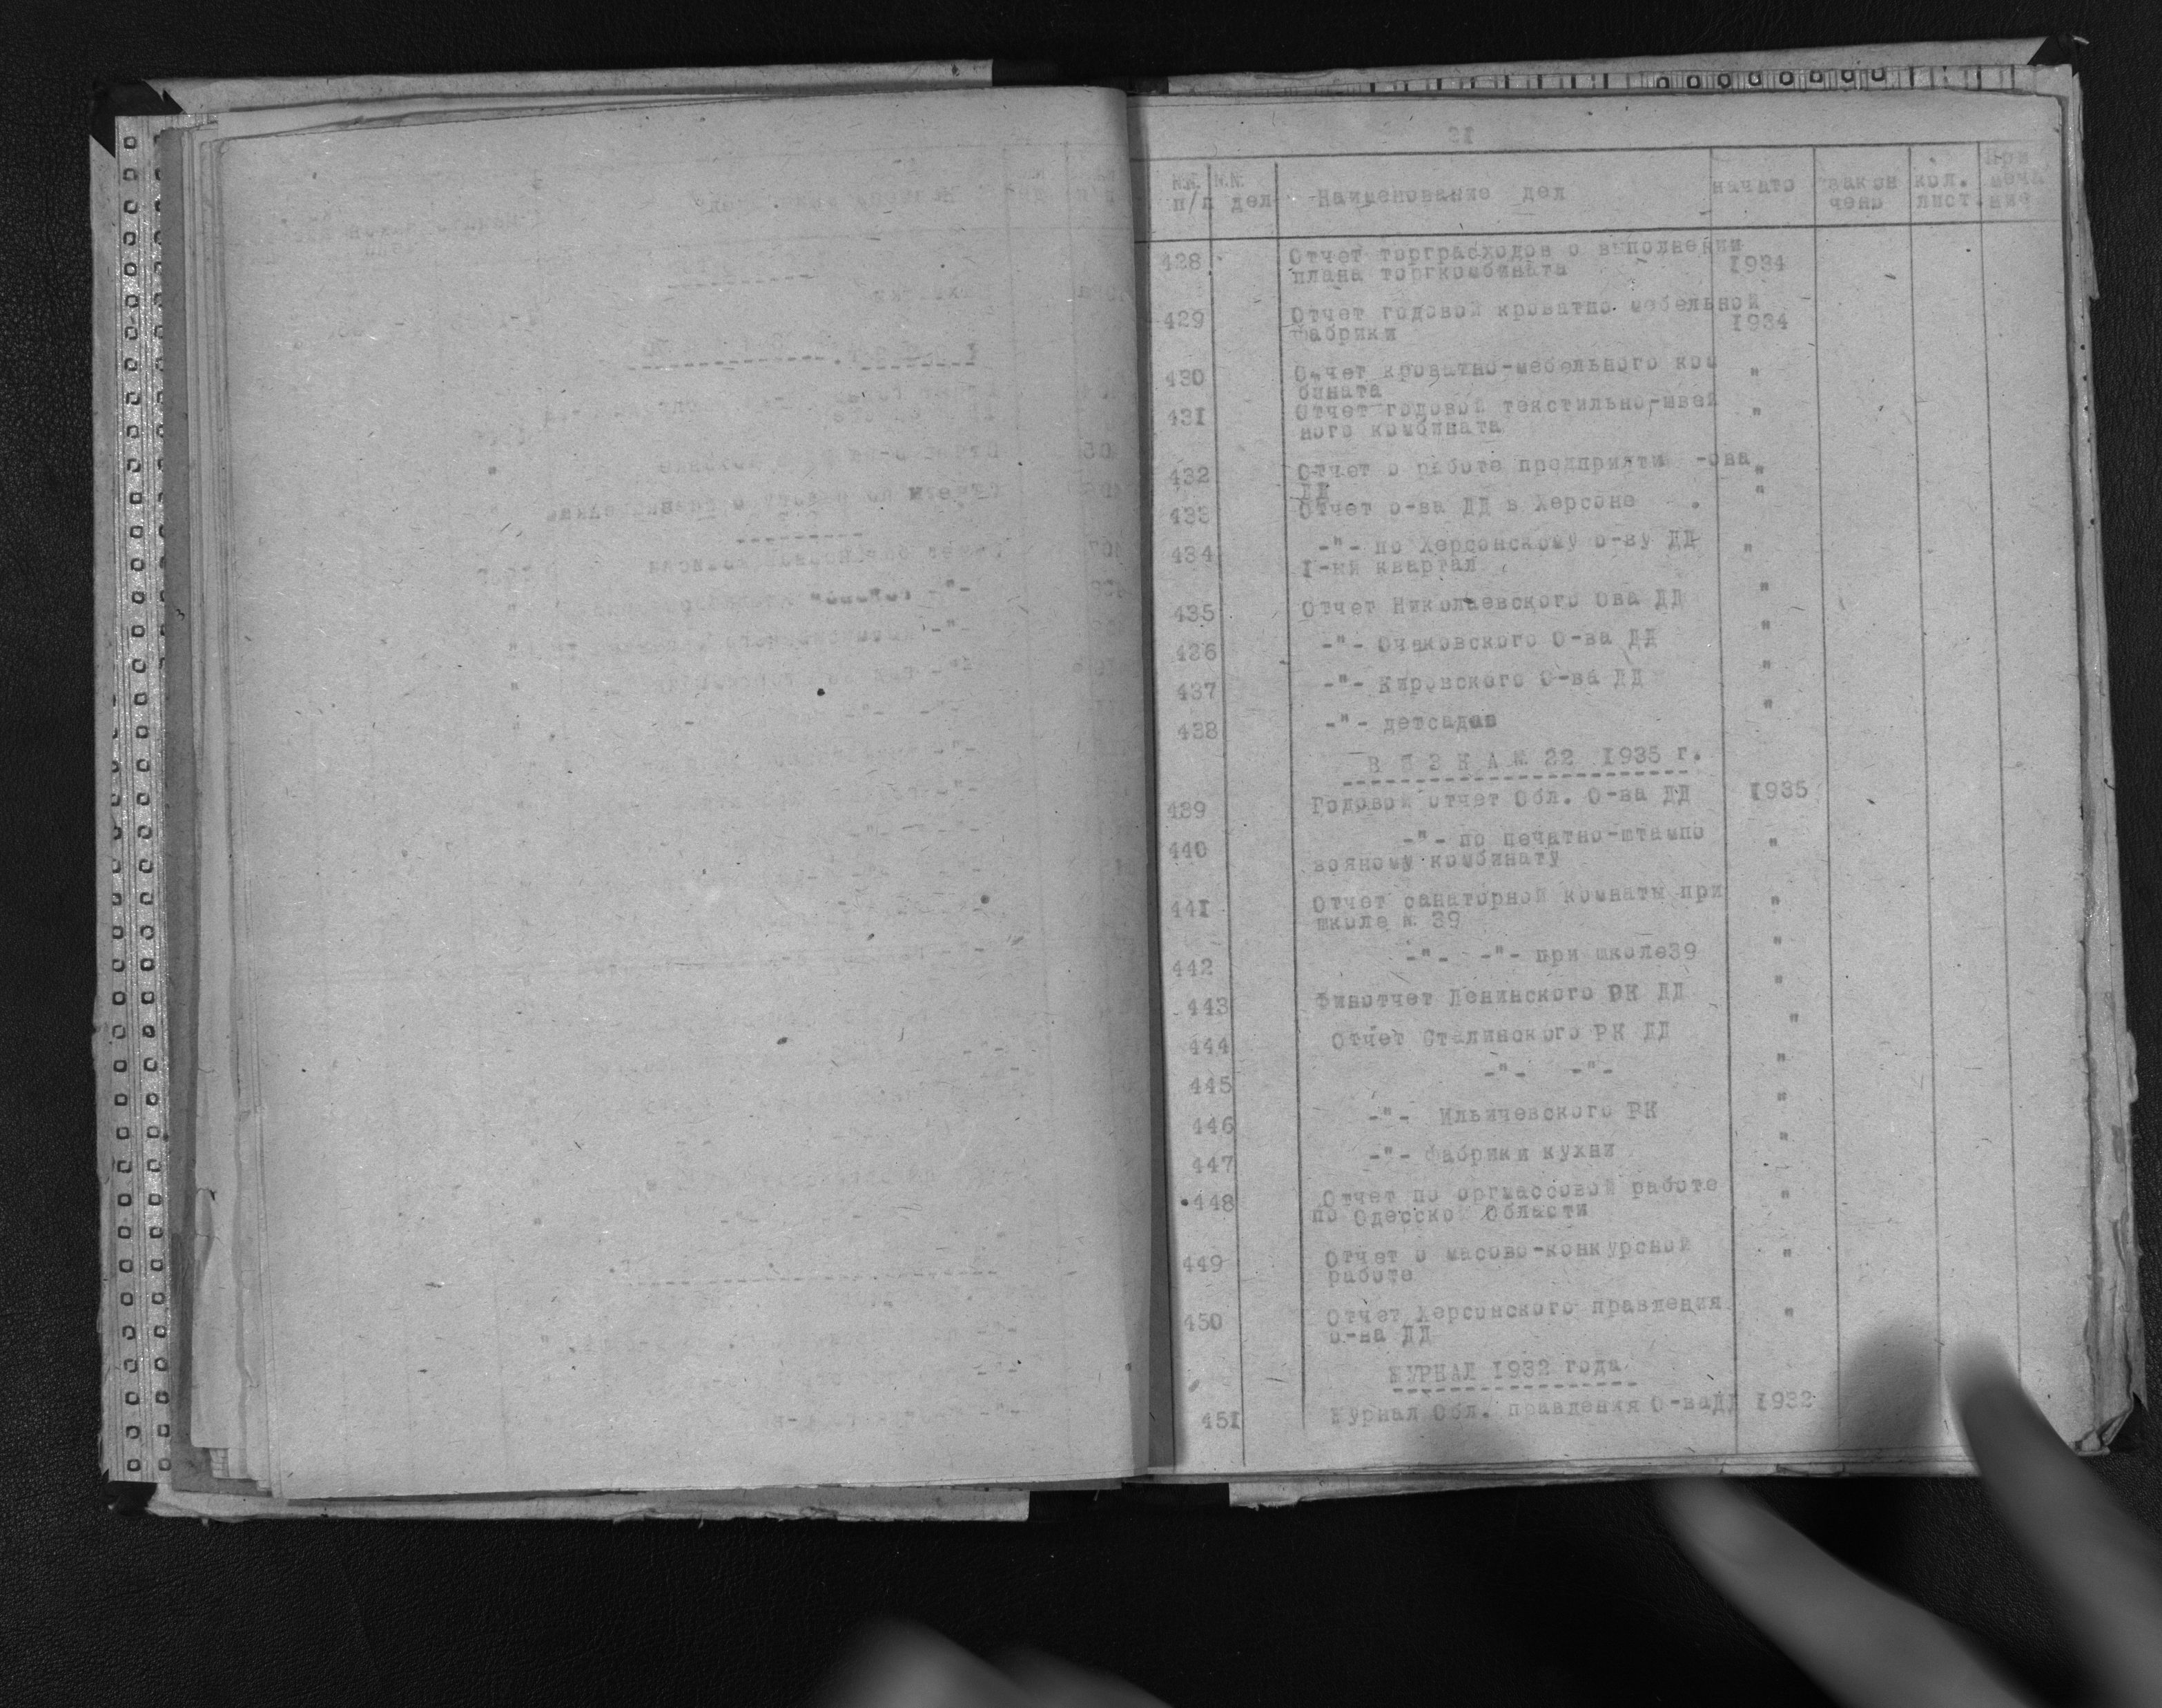 21
№№ п/п №№ дел Наименование дел начато закон чено кол. лист. При меча ние
428 Отчет торграсходов о выполнении 1934
плана торгкомбината
429 Отчет годовой кроватно мебельной 1934
фабрики
430 Отчет кроватно-мебельного ком "
бината
431 Отчет годовой текстильно-швей "
ного комбината
432 Отчет о работе предприятий -ова "
ДД
433 Отчет о-ва ДД в Херсоне "
434 -"- по Херсонскому о-ву ДД "
I-ый квартал
435 Отчет Николаевского Ова ДД "
436 -"- Очаковского О-ва ДД "
437 -"- Кировского О-ва ДД "
438 -"- детсадов "
В Я З К А № 22 1935 г.
439 Годовой отчет Обл. О-ва ДД 1935
440 -"- по печатно-штампо "
вояному комбинату
441 Отчет санаторной комнаты при "
школе № 39
442 -"- -"- при школе39 "
443 Финотчет Ленинского РК ДД "
444 Отчет Сталинского РК ДД "
445 -"- -"- "
446 -"- Ильичевского РК "
447 -"- фабрики кухни "
448 Отчет по оргмассовой работе "
по Одесской Области
449 Отчет о масово-конкурсной "
работе
450 Отчет Херсонского правления "
о-ва ДД
ЖУРНАЛ 1932 года
451 Журнал Обл. правления О-ваДД 1932